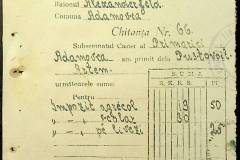 Raional Alexanderfeld
Comuna Adamovca
Chitanța Nr. 66.
Subsemnatul Casier al Primăriei
Adamovca am primit dela Pustovoit
Artem.
SUMA
următoarele sumei
Pentru
Impozit agricol 13 50
" școlar 30
" pe livezi 25